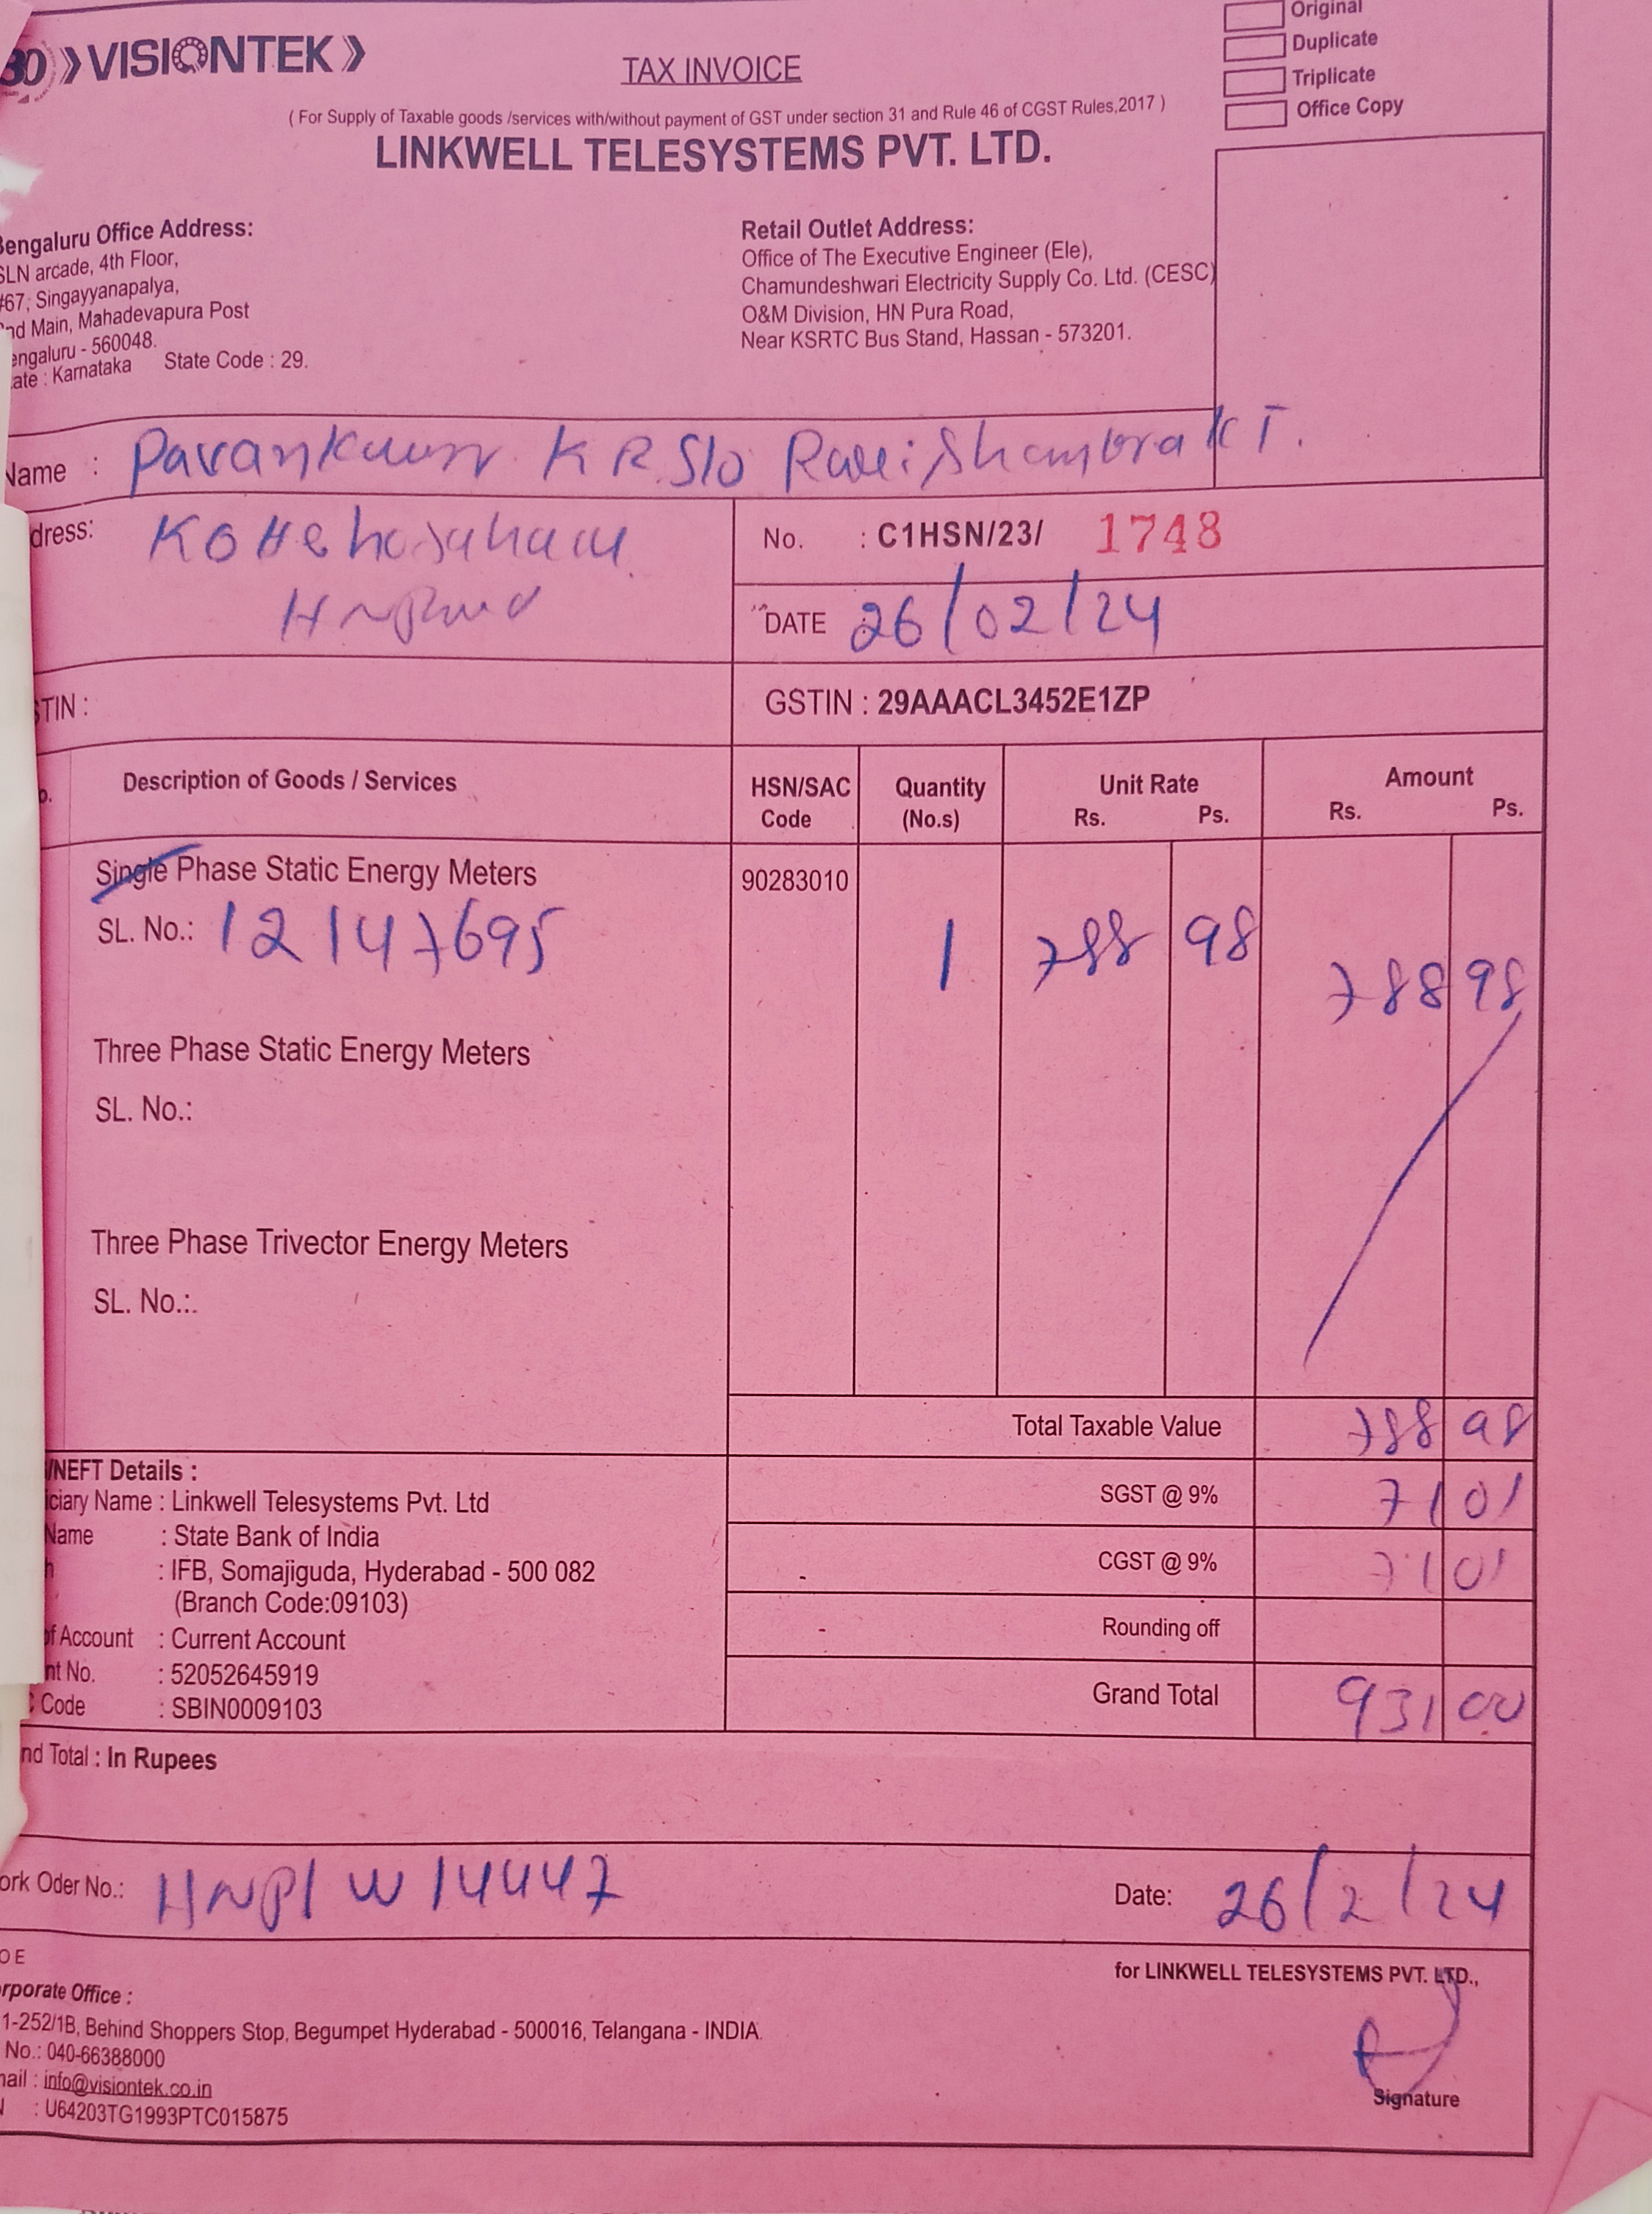 30 VISIONTEK
TAX INVOICE
Original
Duplicate
Triplicate
Office Copy
( For Supply of Taxable goods /services with/without payment of GST under section 31 and Rule 46 of CGST Rules,2017 )
LINKWELL TELESYSTEMS PVT. LTD.
Bengaluru Office Address:
SLN arcade, 4th Floor,
#67, Singayyanapalya,
nd Main, Mahadevapura Post
engaluru - 560048.
ate : Karnataka State Code : 29.
Retail Outlet Address:
Office of The Executive Engineer (Ele),
Chamundeshwari Electricity Supply Co. Ltd. (CESC)
O&M Division, HN Pura Road,
Near KSRTC Bus Stand, Hassan - 573201.
Name : K R S/o K T.
dress:
No. : C1HSN/23/ 1748
DATE 26/02/24
STIN :
GSTIN : 29AAACL3452E1ZP
o. Description of Goods / Services HSN/SAC Code Quantity (No.s) Unit Rate Rs. Ps. Amount Rs. Ps.
Single Phase Static Energy Meters 90283010
SL. No.: 12147695 1 788 98 788 98
Three Phase Static Energy Meters
SL. No.:
Three Phase Trivector Energy Meters
SL. No.:.
Total Taxable Value 788 98
SGST @ 9% 71 01
CGST @ 9% 71 01
Rounding off
Grand Total 931 00
/NEFT Details :
iciary Name : Linkwell Telesystems Pvt. Ltd
Name : State Bank of India
h : IFB, Somajiguda, Hyderabad - 500 082
(Branch Code:09103)
of Account : Current Account
nt No. : 52052645919
C Code : SBIN0009103
nd Total : In Rupees
ork Oder No.: HNP/W14447
Date: 26/2/24
O E
for LINKWELL TELESYSTEMS PVT. LTD.,
rporate Office :
1-252/1B, Behind Shoppers Stop, Begumpet Hyderabad - 500016, Telangana - INDIA.
No.: 040-66388000
mail : info@visiontek.co.in
: U64203TG1993PTC015875
Signature